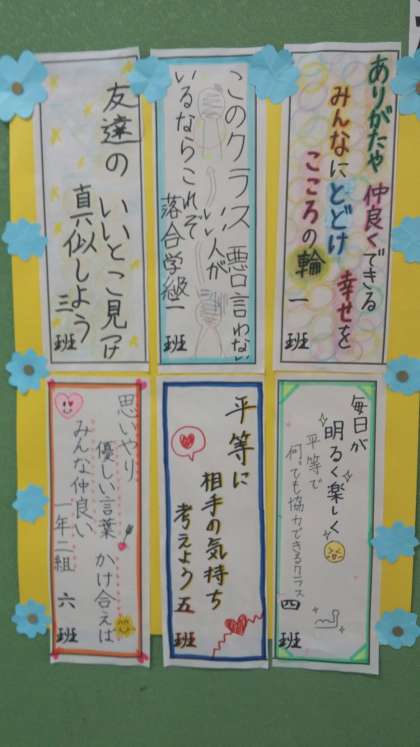 ありがたや 仲良くできる
みんなにとどけ 幸せを
こころの輪
一班
このクラス 悪口言わない
いい人が
いるならこれぞ
落合学級
二班
友達の いいとこ見つけ
真似しよう
三班
毎日が
明るく楽しく
平等で
何でも協力できるクラス
四班
平等に
相手の気持ち
考えよう
五班
思いやり
優しい言葉 かけ合えば
みんな仲良い
一年二組 六班